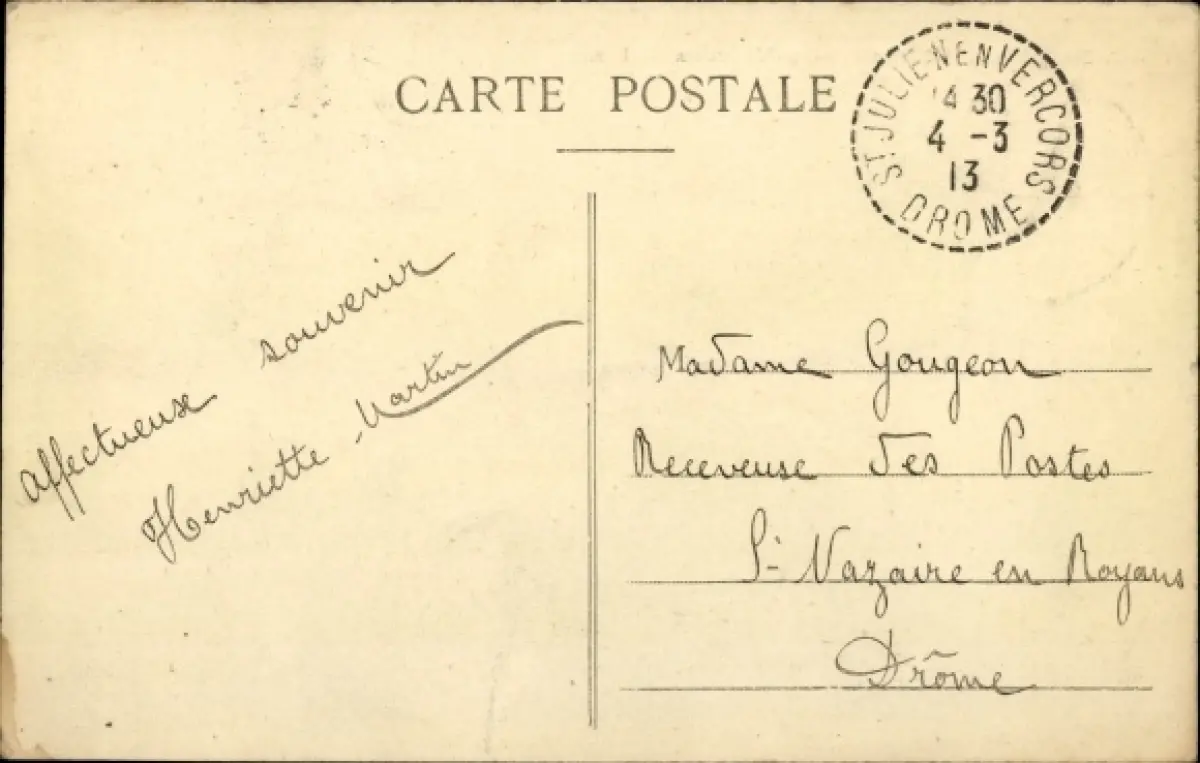 CARTE POSTALE
ST JULIEN EN VERCORS
14 30
4 -3
13
DROME
affectueux souvenir
Henriette Martin
Madame Gougeon
Receveuse des Postes
St Nazaire en Royans
Drôme